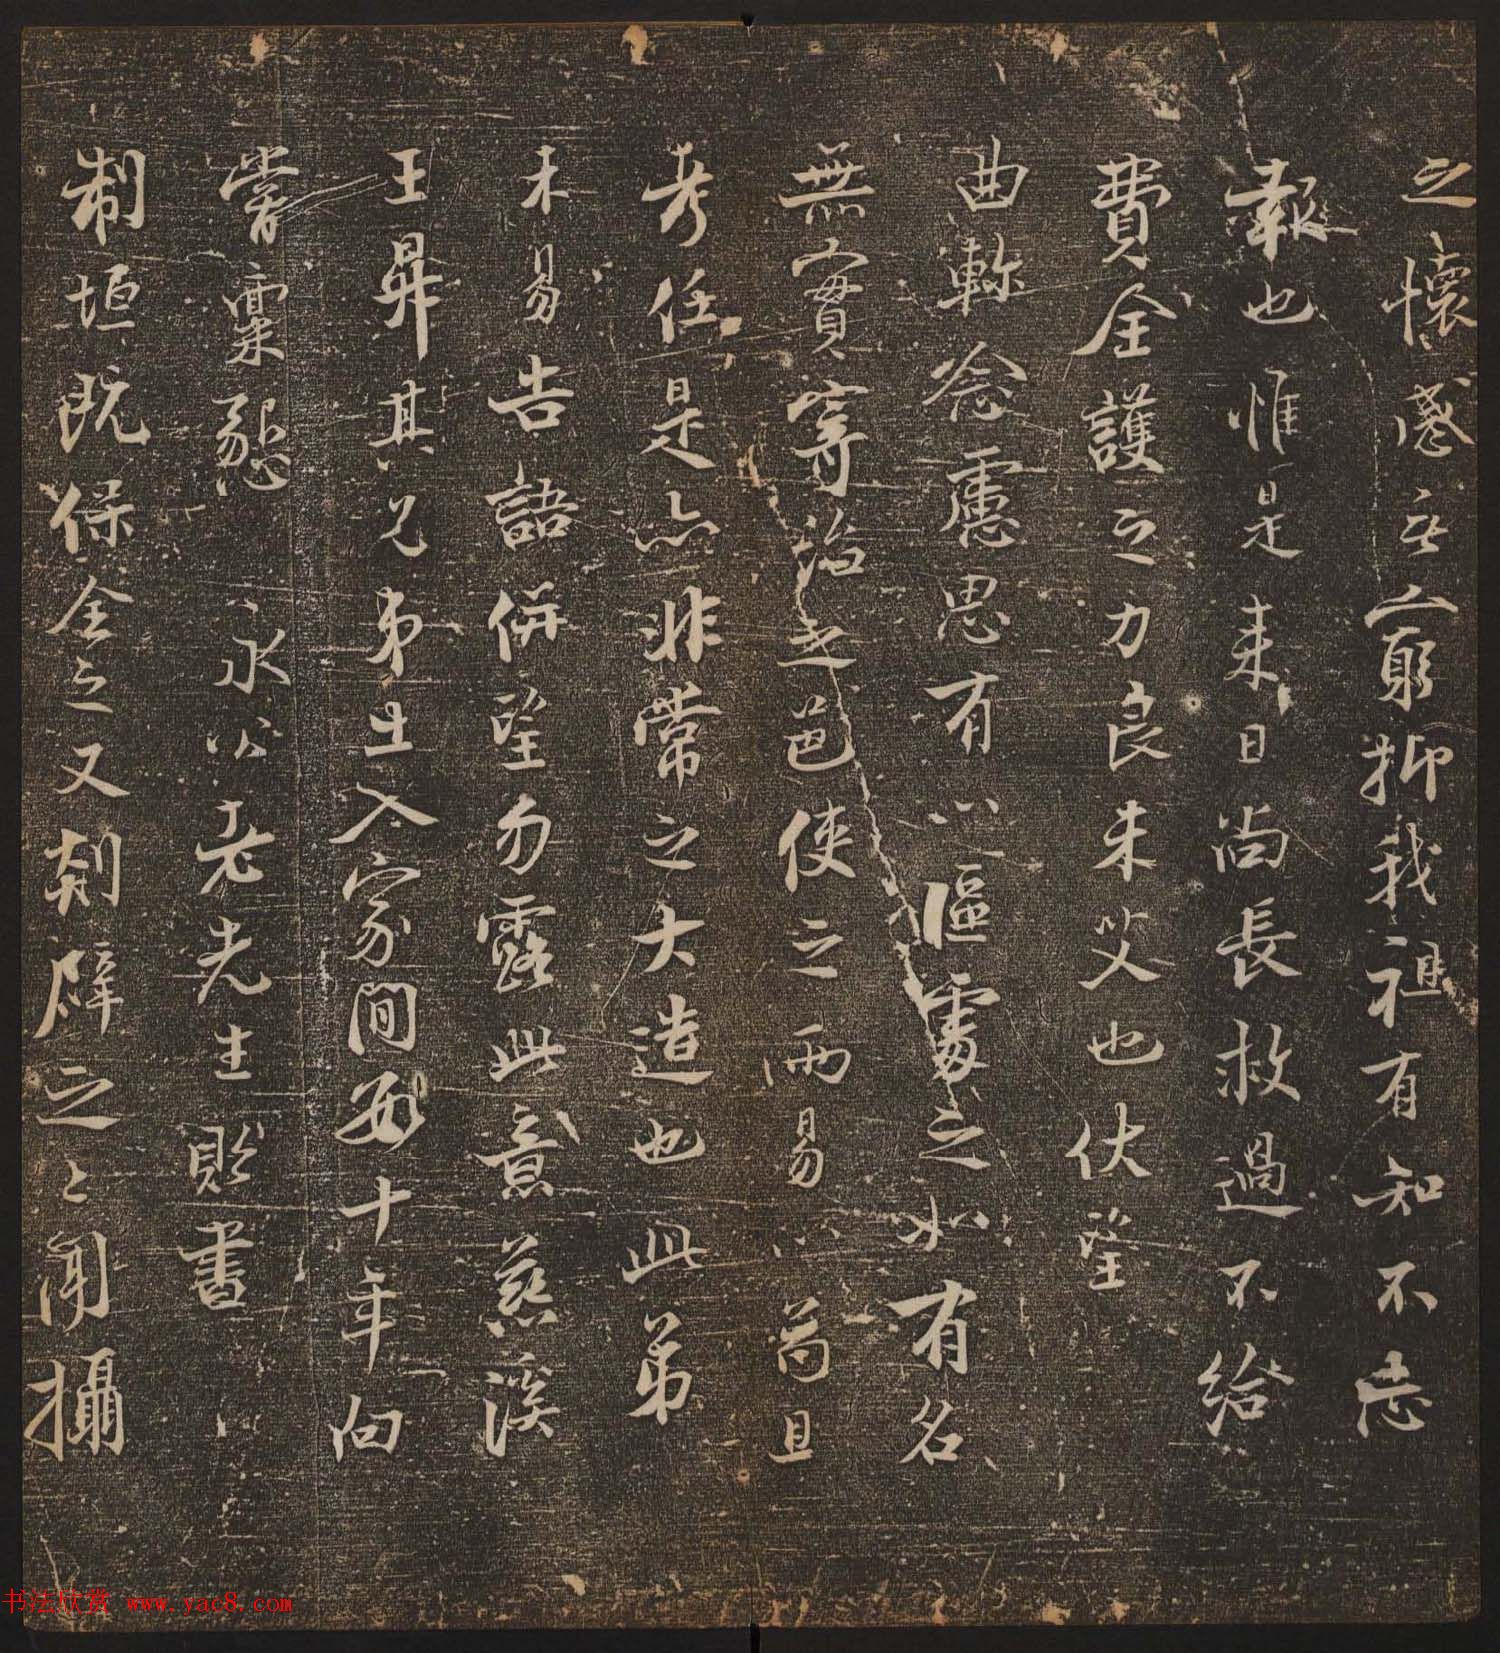 之懷感豈窮抑我祖有知不忘
報也惟是來日尚長救過不給
費全護之力良未艾也伏望
曲軫念慮思有以區處之如有名
無實寄治之邑使之而易以苟且
考任是亦非常之大造也此弟
未易告語併望勿露此意慈溪
王昇其兄弟出入家間數十年向
嘗稟懇 永公老先生貽書以
制垣既保全之又剡辟之之間攝
书法欣赏 www.yac8.com